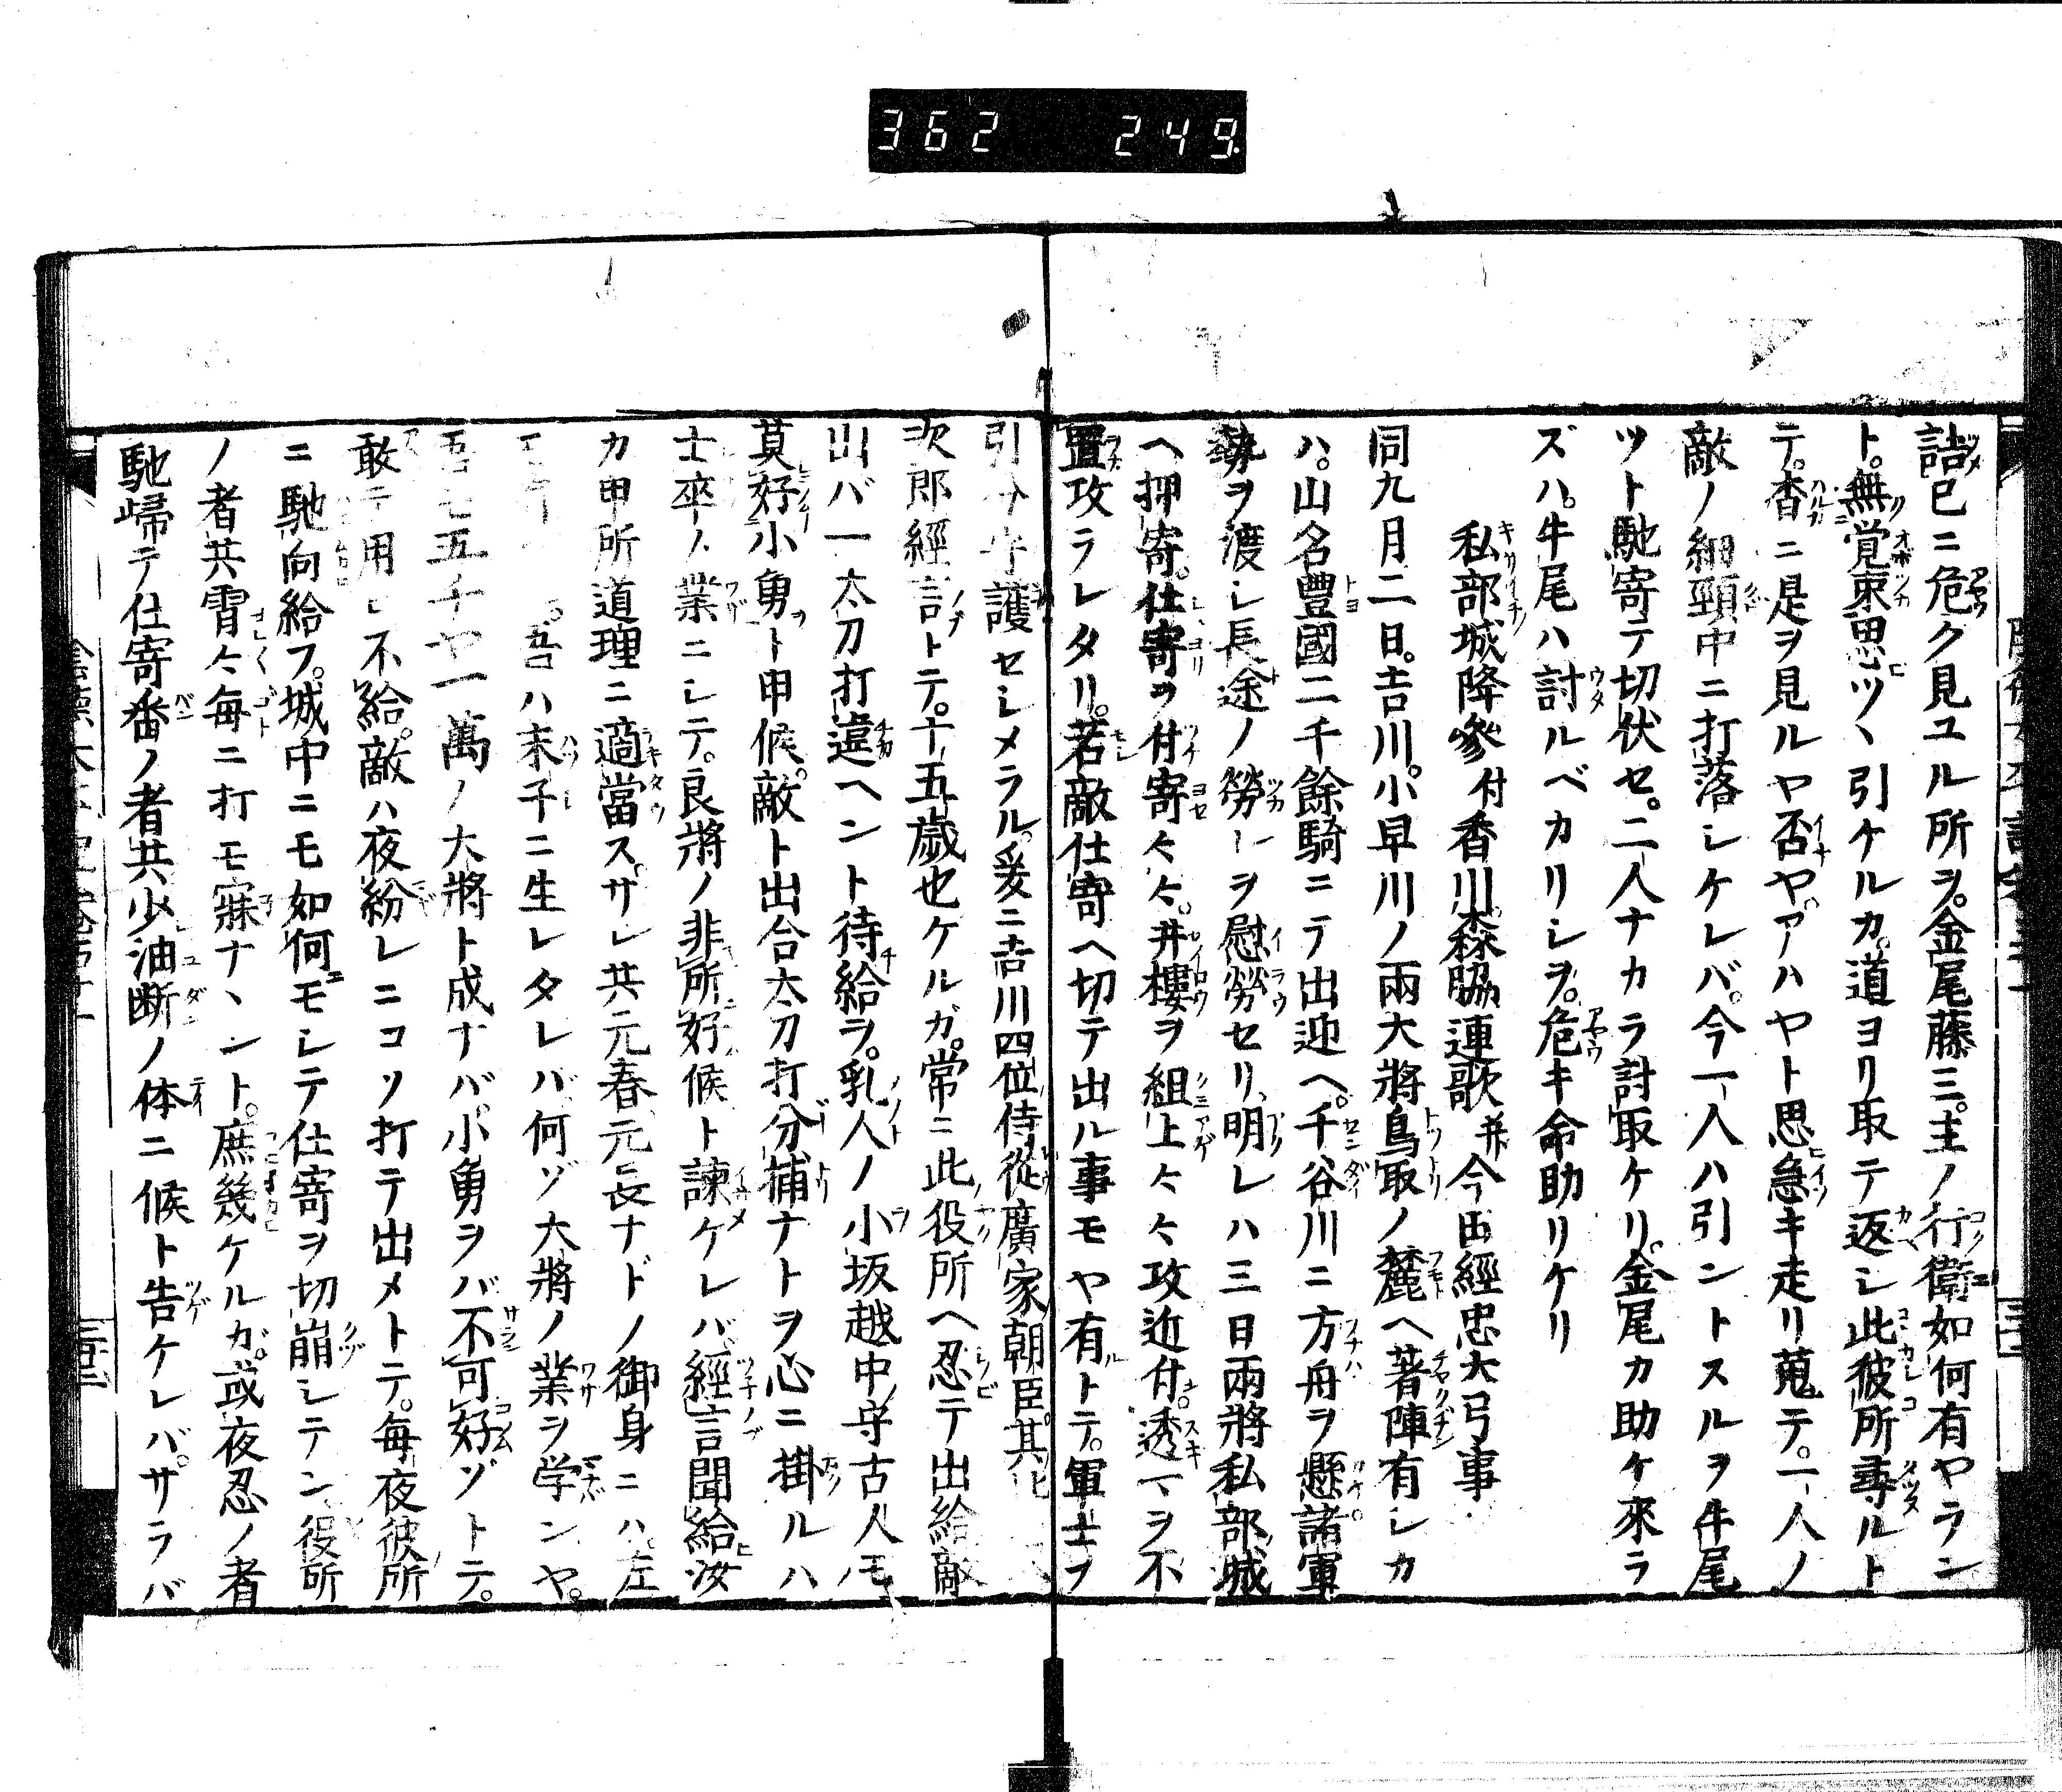 362 249
詰已ニ危ク見ユル所ヲ。金尾藤三。主ノ行衛如何有ヤラン
ト。無覚束思ツヽ引ケルカ。道ヨリ取テ返シ此彼所尋ルト
テ。杳ニ是ヲ見ルヤ否ヤ。アハヤト思急キ走リ蒐テ。一人ノ
敵ノ細頸中ニ打落シケレバ。今一人ハ引ントスルヲ牛尾
ツト馳寄テ切伏セ。二人ナカラ討取ケリ。金尾カ助ケ來ラ
ズハ。牛尾ハ討ルベカリシヲ。危キ命助リケリ
私部城降參付香川森脇連歌并今田經忠大弓事
同九月二日。吉川。小早川ノ兩大將鳥取ノ麓ヘ著陣有シカ
ハ。山名豐國二千餘騎ニテ出迎ヘ。千谷川ニ方舟ヲ懸諸軍
勢ヲ渡シ長途ノ勞ヲ慰勞セリ。明レハ三日兩將私部城
ヘ押寄。仕寄ヲ付寄々々。井樓ヲ組上々々攻近付透マヲ不
置攻ラレタリ。若敵仕寄ヘ切テ出ル事モヤ有トテ。軍士ヲ
引分守護セシメラル。爰ニ吉川四位侍從廣家朝臣。其比
次郎經言トテ。十五歳也ケルガ。常ニ此役所ヘ忍テ出給敵
出バ一太刀打違ヘント待給ヲ。乳人ノ小坂越中守古人モ
莫好小勇ト申候。敵ト出合太刀打分捕ナトヲ心ニ掛ルハ
士卒ノ業ニシテ。良將ノ非所好候ト諫ケレバ。經言聞給汝
カ申所道理ニ適當ス。サレ共元春元長ナドノ御身ニハ。左
モ。吾ハ末子ニ生レタレバ。何ゾ大將ノ業ヲ学ンヤ。
吾モ五千ヤ一萬ノ大將ト成ナバ。小勇ヲバ不可好ゾトテ。
敢テ用シ不給。敵ハ夜紛レニコソ打テ出メトテ。毎夜彼所
ニ馳向給フ。城中ニモ如何ニモシテ仕寄ヲ切崩シテン。役所
ノ者共霄々毎ニ打モ寐ナヽント。庶幾ケルガ。或夜忍ノ者
馳歸テ仕寄番ノ者共少油断ノ体ニ候ト告ケレバ。サラバ